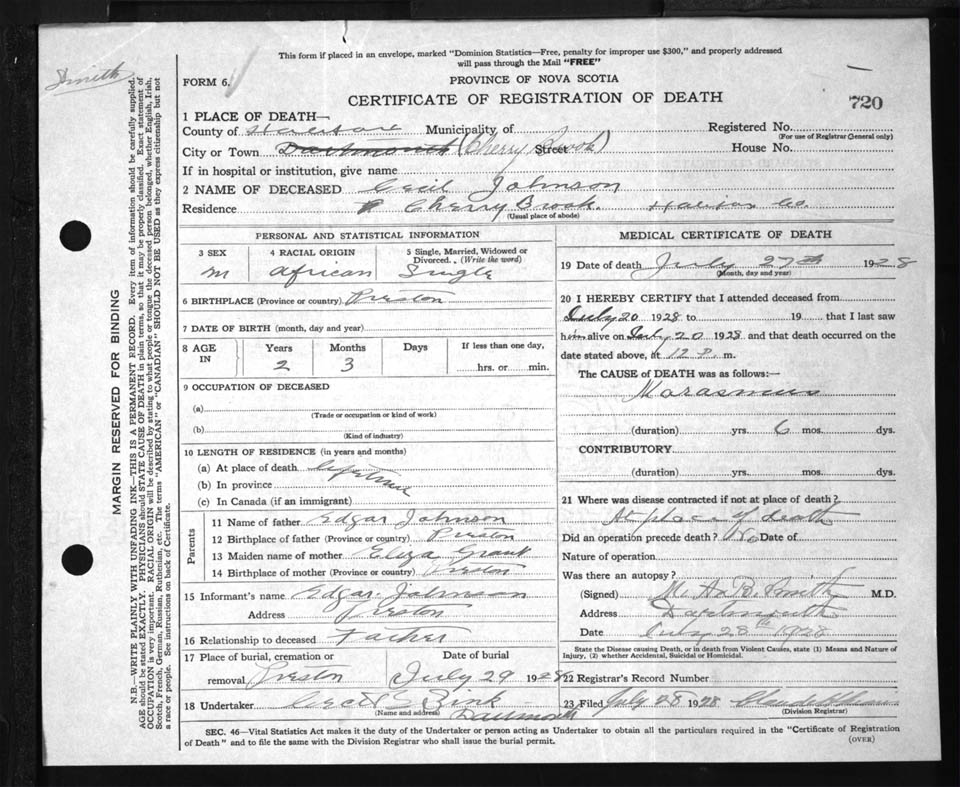 This form if placed in an envelope, marked "Dominion Statistics—Free, penalty for improper use $300," and properly addressed
will pass through the Mail "FREE"
Smith
FORM 6.
PROVINCE OF NOVA SCOTIA
CERTIFICATE OF REGISTRATION OF DEATH
720
1 PLACE OF DEATH—
County of Municipality of Registered No.
(For use of Registrar General only)
City or Town Dartmouth (Cherry Brook) Street House No.
If in hospital or institution, give name
2 NAME OF DECEASED Cecil Johnson
Residence Cherry Brook. Halifax Co.
(Usual place of abode)
PERSONAL AND STATISTICAL INFORMATION
3 SEX 4 RACIAL ORIGIN 5 Single, Married, Widowed or
Divorced. (Write the word)
m African Single
6 BIRTHPLACE (Province or country) Preston
7 DATE OF BIRTH (month, day and year)
8 AGE IN Years Months Days If less than one day,
2 3 hrs. or min.
9 OCCUPATION OF DECEASED
(a)
(Trade or occupation or kind of work)
(b)
(Kind of industry)
10 LENGTH OF RESIDENCE (in years and months)
(a) At place of death lifetime
(b) In province
(c) In Canada (if an immigrant)
Parents
11 Name of father Edgar Johnson
12 Birthplace of father (Province or country) Preston
13 Maiden name of mother Eliza Grant
14 Birthplace of mother (Province or country) Preston
15 Informant's name Edgar Johnson
Address Preston
16 Relationship to deceased Father
17 Place of burial, cremation or Date of burial
removal Preston July 29 1928
18 Undertaker Zink
(Name and address) Dartmouth
MEDICAL CERTIFICATE OF DEATH
19 Date of death July 27th 1928
(Month, day and year)
20 I HEREBY CERTIFY that I attended deceased from
July 20 1928 to 19 that I last saw
him alive on July 20 1928 and that death occurred on the
date stated above, at 12 P. m.
The CAUSE OF DEATH was as follows:—
Marasmus
(duration) yrs. 6 mos. dys.
CONTRIBUTORY
(duration) yrs. mos. dys.
21 Where was disease contracted if not at place of death?
At place of death
Did an operation precede death? No Date of
Nature of operation
Was there an autopsy?
(Signed) M. A. B. Smith M.D.
Address Dartmouth
Date July 28th 1928
State the Disease causing Death, or in death from Violent Causes, state (1) Means and Nature of
Injury, (2) whether Accidental, Suicidal or Homicidal.
22 Registrar's Record Number
23 Filed July 28 1928
(Division Registrar)
SEC. 46—Vital Statistics Act makes it the duty of the Undertaker or person acting as Undertaker to obtain all the particulars required in the "Certificate of Registration
of Death" and to file the same with the Division Registrar who shall issue the burial permit.
(OVER)
MARGIN RESERVED FOR BINDING
N.B.—WRITE PLAINLY WITH UNFADING INK—THIS IS A PERMANENT RECORD. Every item of information should be carefully supplied.
AGE should be stated EXACTLY. PHYSICIANS should STATE CAUSE OF DEATH in plain terms, so that it may be properly classified. Exact statement of
OCCUPATION is very important. RACIAL ORIGIN will be described by stating to what people or tongue the deceased person belonged, whether English, Irish,
Scotch, French, German, Russian, Ruthenian, etc. The terms "AMERICAN" or "CANADIAN" SHOULD NOT BE USED as they express citizenship but not
a race or people. See instructions on back of Certificate.